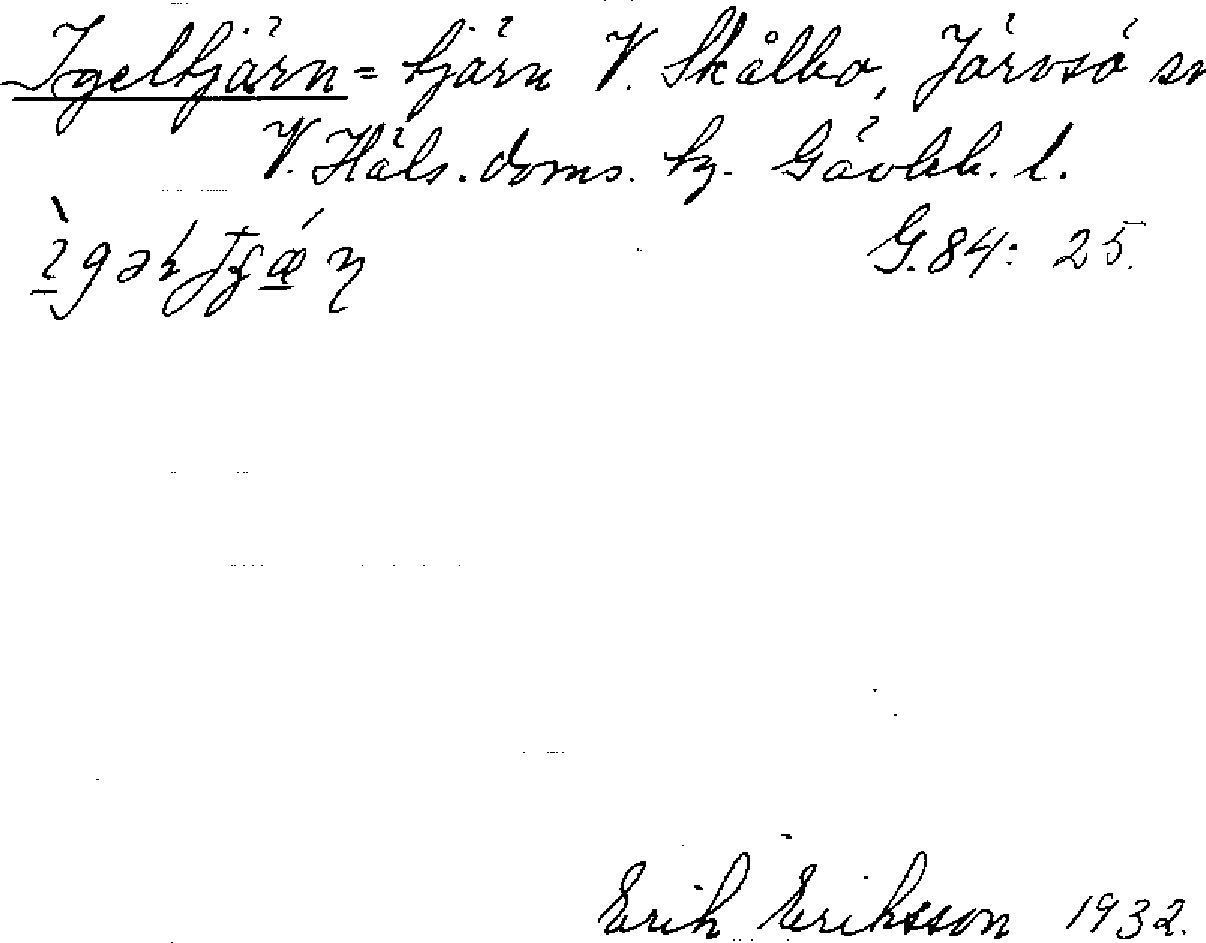 Igeltjärn = tjärn V. Skålbo, Järvsö sn
V. Häls. doms. tg. Gävleb. l.
G.84: 25.
Erik Eriksson 1932.